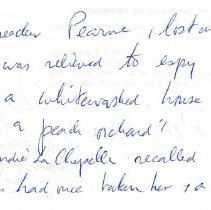 Pearne, lost
was relieved to espy
a whitewashed house
a peach orchard".
La Chapelle recalled
had once taken her